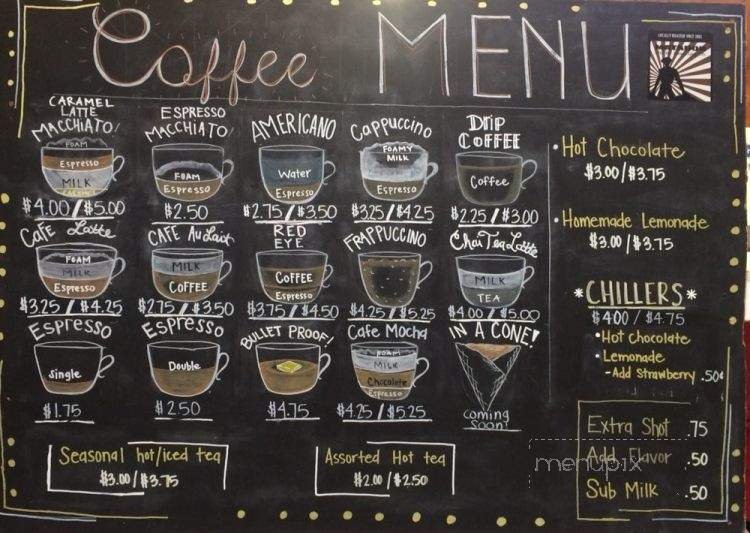 Coffee MENU
LOCALLY ROASTED SINCE 2001
CARAMEL
LATTE
MACCHIATO!
FOAM
Espresso
MILK
CARAMEL
$4.00 / $5.00
ESPRESSO
MACCHIATO!
FOAM
Espresso
$2.50
AMERICANO
Water
Espresso
$2.75 / $3.50
Cappuccino
FOAMY
MILK
Espresso
$3.25 / $4.25
Drip
COFFEE
Coffee
$2.25 / $3.00
Cafe Latte
FOAM
MILK
Espresso
$3.25 / $4.25
CAFE Au Lait
MILK
COFFEE
$2.75 / $3.50
RED
EYE
COFFEE
Espresso
$3.75 / $4.50
FRAPPUCCINO
$4.25 / $5.25
Chai Tea Latte
MILK
TEA
$4.00 / $5.00
Espresso
Single
$1.75
Espresso
Double
$2.50
BULLET PROOF!
$4.75
Cafe Mocha
FOAM
MILK
Chocolate
Espresso
$4.25 / $5.25
IN A CONE!
coming
soon!
Seasonal hot/iced tea
$3.00 / $3.75
Assorted Hot tea
$2.00 / $2.50
• Hot Chocolate
$3.00 / $3.75
• Homemade Lemonade
$3.00 / $3.75
*CHILLERS*
$4.00 / $4.75
• Hot Chocolate
• Lemonade
- Add Strawberry .50¢
Extra Shot .75
Add Flavor .50
Sub Milk .50
menupix